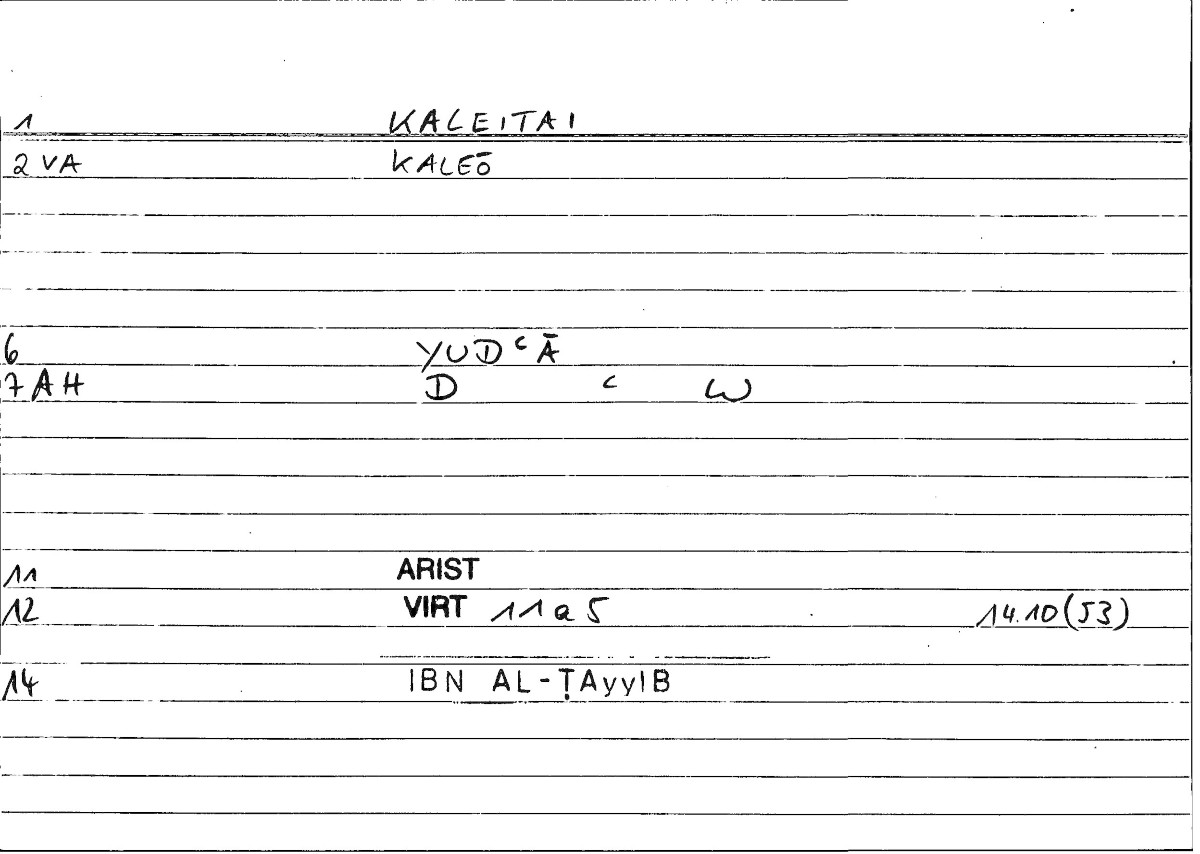 1 KALEITAI
2 VA KALEŌ
6 YUDʿĀ
7 AH D ʿ W
11 ARIST
12 VIRT 11a5 14.10(53)
14 IBN AL-ṬAyyIB